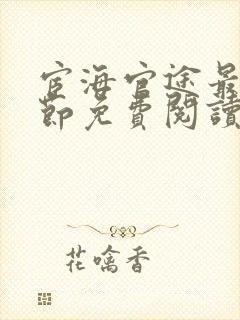 宦海官途最
節免費閱讀
花噙香